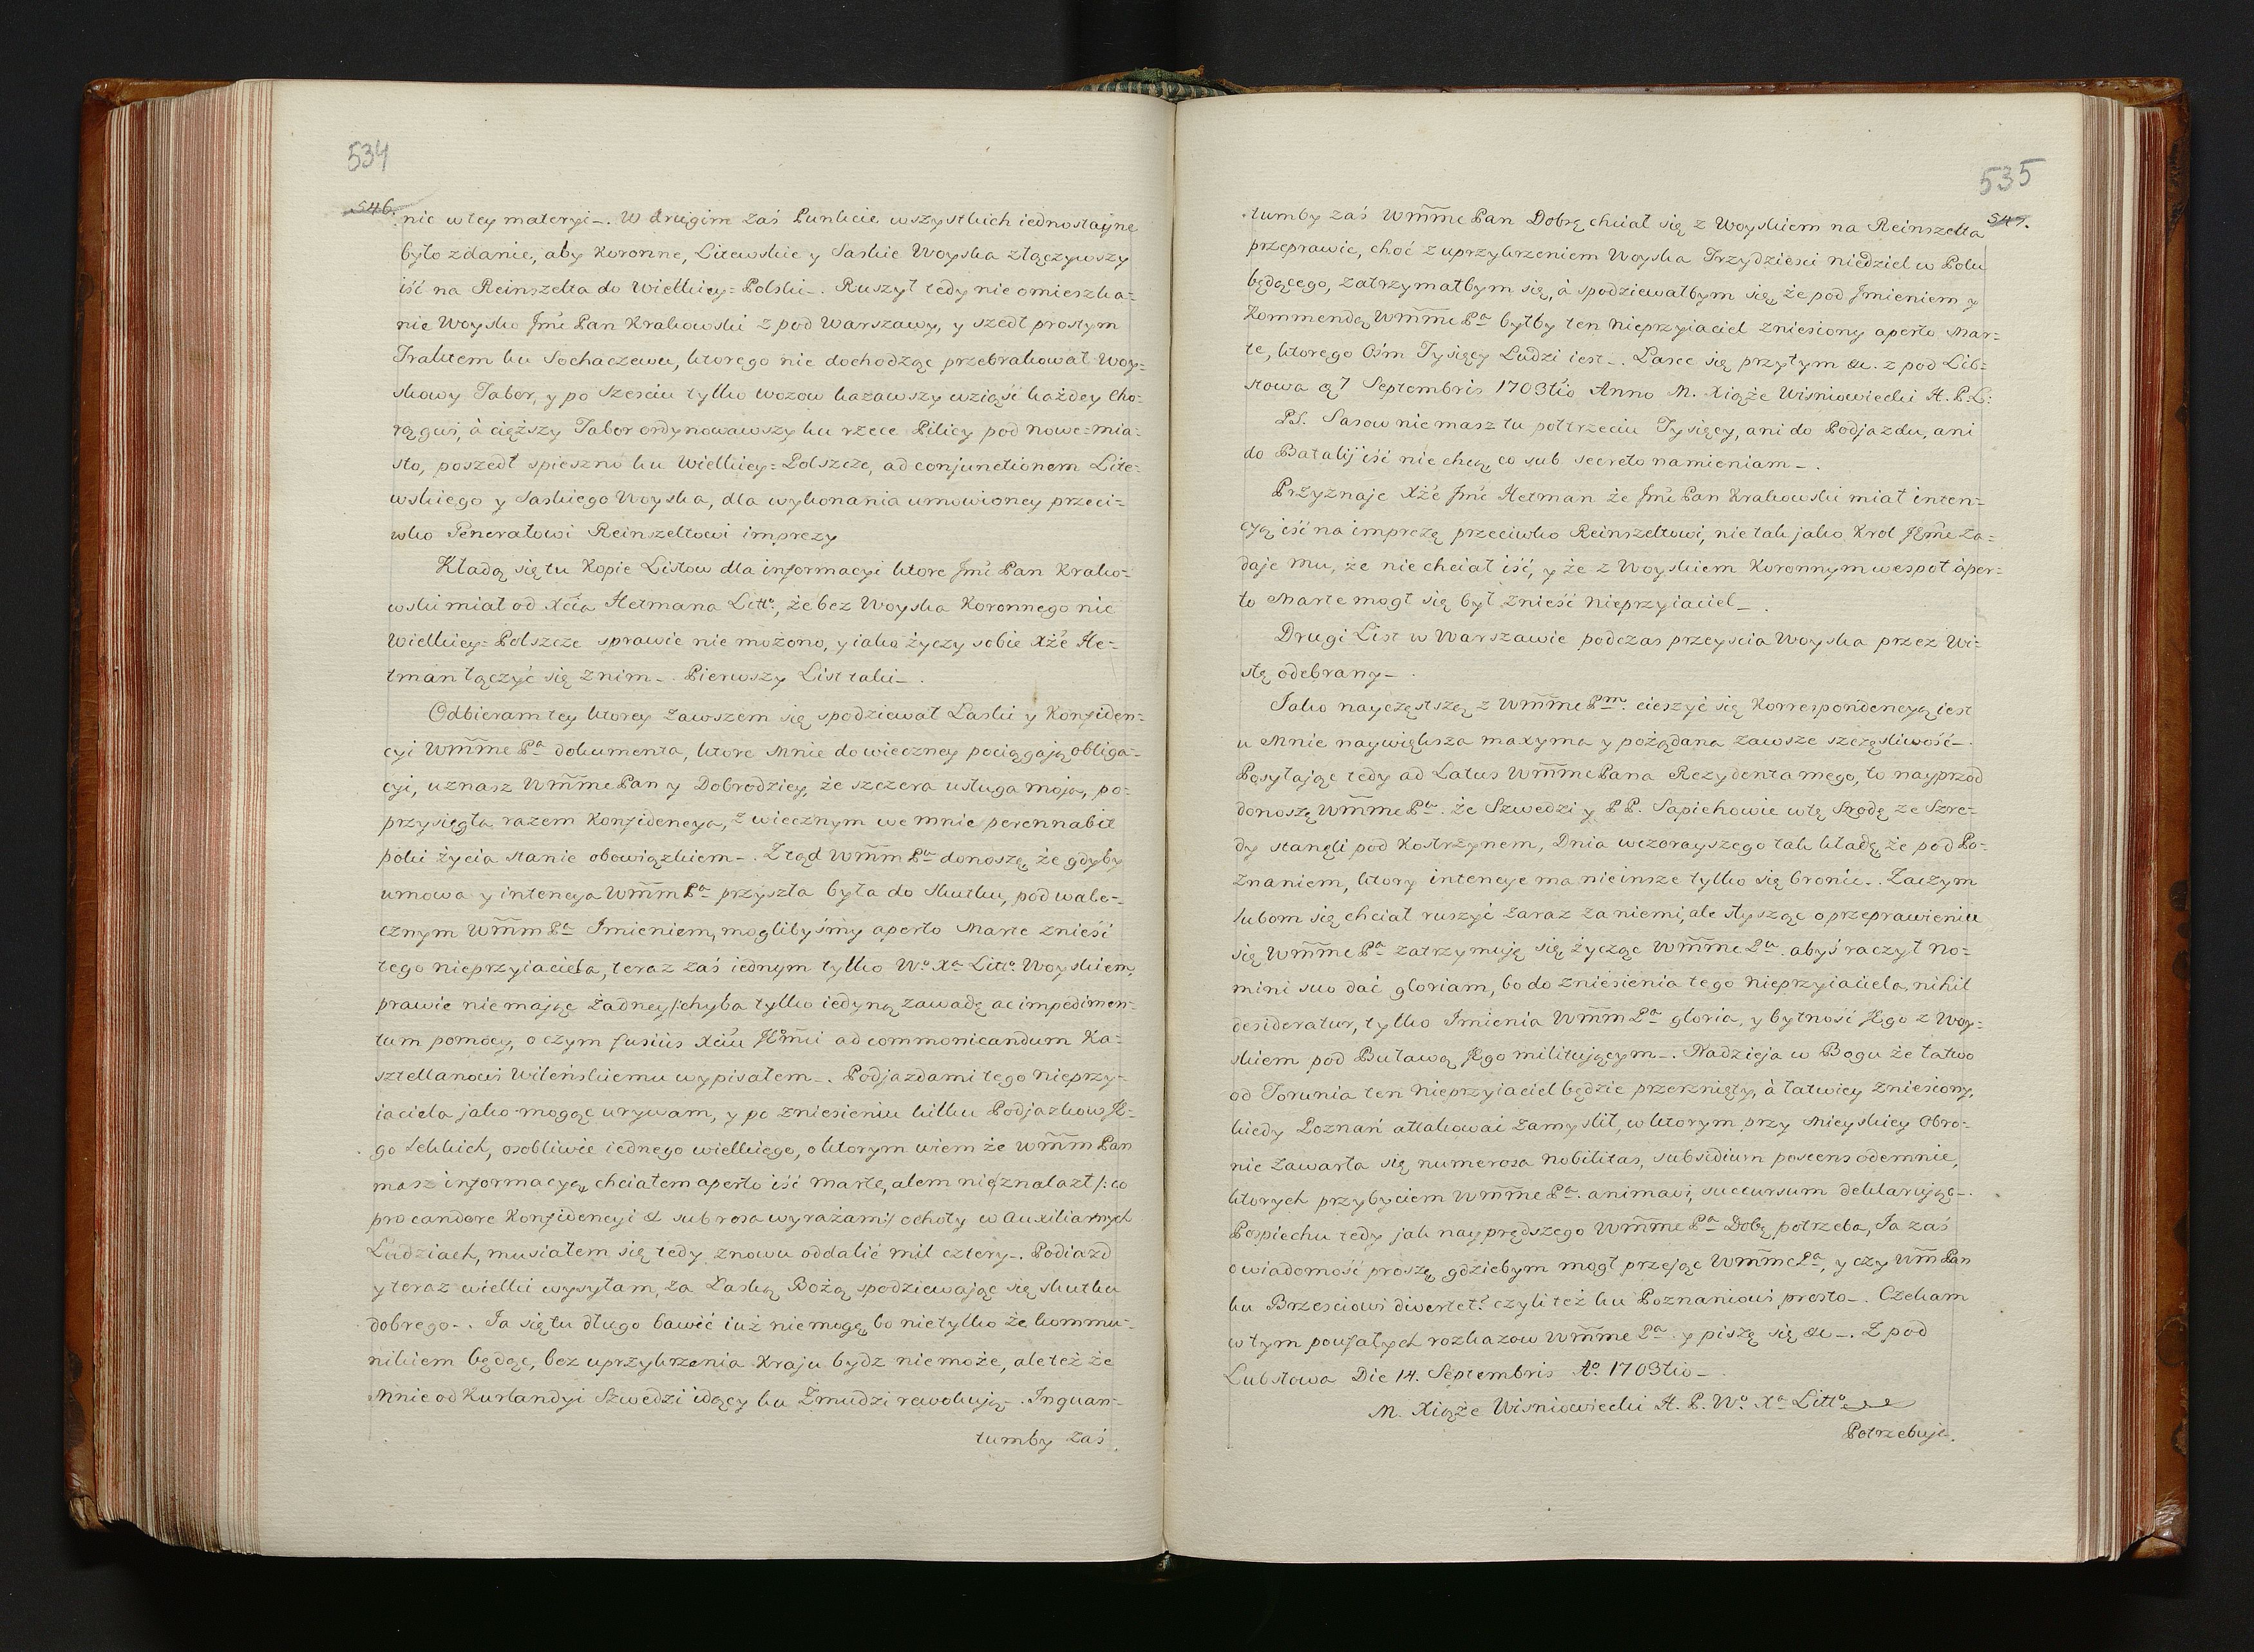 534
546. nic w tey materyi -. W drugim zaś Punkcie wszystkich iednostayne
było zdanie, aby Koronne, Litewskie y Saskie Woyska złączywszy
iść na Reinszelta do Wielkiey=Polski -. Ruszył tedy nie omieszka=
nie Woysko Jm̃ć Pan Krakowski z pod Warszawy, y szedł prostym
Traktem ku Sochaczewu, ktorego nie dochodząc przebrakował Woy=
skowy Tabor, y po Sześciu tylko wozow kazawszy wziąść każdey Cho=
rągwi, à cięższy Tabor ordynowawszy ku rzece Pilicy pod nowe=mia=
sto, poszedł spieszno ku Wielkiey=Polszcze, ad conjunctionem Lite=
wskiego y Saskiego Woyska, dla wykonania umowioney przeci=
wko Generałowi Reinszeltowi imprezy
Kładą się tu Kopie Listow dla informacyi ktore Jm̃ć Pan Krako=
wski miał od Xćia Hetmana Litt:º, że bez Woyska Koronnego nic
Wielkiey=Polszcze sprawić nie możono, y iako życzy sobie Xżē He=
tman łączyć się z nim -. Pierwszy List taki -.
Odbieram tey ktorey zawszem się spodziewał Łaski y Konfiden=
cyi Wm̃m̃e Pª dokumenta, ktore Mnie do wieczney pociągają obliga=
cyi, uznasz Wm̃m̃e Pan y Dobrodziey, że szczera usługa moja, po=
przysięgła razem Konfidencya, z wiecznym we mnie perennabit
poki życia stanie obowiązkiem -. Ztąd Wm̃m̃ Pª donoszę że gdyby
umowa y intencya Wm̃m̃ Pª przyszła była do Skutku, pod wale=
cznym Wm̃m̃ Pª Imieniem, moglibyśmy aperto Marte znieść
tego nieprzyiaciela, teraz zaś iednym tylko Wº Xª Littº Woyskiem,
prawie nie mając żadney /:chyba tylko iedyną zawadę ac impedimen=
tum pomocy, o czym fusiùs Xćiu JKm̃ći ad commonicandum Ka=
sztellanowi Wileńskiemu wypisałem -. Podjazdami tego nieprzy=
iaciela jako mogąc urywam, y po zniesieniu kilku Podjazkow Je=
go lekkich, osobliwie iednego wielkiego, o ktorym wiem że Wm̃m̃ Pan
masz informacyą, chciałem aperto iść marte, alem nie znalazł /:co
pro candore Konfidencyi & sub rosa wyrażam:/ ochoty w Auxiliarnych
Ludziach, musiałem się tedy znowu oddalić mil cztery -. Podiazd
y teraz wielki wysyłam, za Łaską Bożą spodziewając się skutku
dobrego -. Ja się tu długo bawić iuż nie mogę, bo nie tylko że kommu=
nikiem będąc, bez uprzykrzenia Kraju bydz nie może, ale też że
Mnie od Kurlandyi Szwedzi idący ku Żmudzi rewokują -. Inquan=
tumby zaś
535
547.
tumby zaś Wm̃m̃e Pan Dobrę chciał się z Woyskiem na Reinszelta
przeprawić, choć z uprzykrzeniem Woyska Trzydzieści niedziel w Polu
będącego, zatrzymałbym się, à spodziewałbym się, że pod Imieniem y
Kommendą Wm̃m̃e Pª byłby ten Nieprzyiaciel zniesiony aperto Mar=
te, ktorego Ośm Tysięcy Ludzi iest -. Łasce się przytym &c. z pod Lib=
stowa 7 Septembris 1703tio Anno M. Xiąże Wiśniowiecki H. P. L:
PS. Sasow nie masz tu pułtrzeciu Tysięcy, ani do Podjazdu, ani
do Batalij iść nie chcą, co sub secreto namieniam -.
Przyznaje Xżē Jm̃ć Hetman że Jm̃ć Pan Krakowski miał inten=
cyą iść na imprezę przeciwko Reinszeltowi, nie tak jako Krol JKm̃ć za=
daje mu, że nie chciał iść, y że z Woyskiem Koronnym wespoł aper=
to Marte mogł się był znieść Nieprzyiaciel -.
Drugi List w Warszawie podczas przeyścia Woyska przez Wi=
słę odebrany -.
Jako nayczęstszą z Wm̃m̃e Pm. cieszyć się Korrespondencyą iest
u Mnie naywiększa maxyma y pożądana zawsze szczęśliwość -.
Posyłając tedy ad Latus Wm̃m̃e Pana Rezydenta mego, to nayprzod
donoszę Wm̃m̃e Pª. że Szwedzi y PP. Sapiehowie w tę Srodę ze Szre=
dy stanęli pod Kostrzynem, Dnia wczorayszego tak kładę że pod Po=
znaniem, ktory intencye ma nie insze tylko się bronić. Zaczym
lubom się chciał ruszyć zaraz za niemi, ale słysząc o przeprawieniu
się Wm̃m̃e Pª zatrzymuję się, życząc Wm̃m̃e Pª. abyś raczył No=
mini suo dać gloriam, bo do zniesienia tego Nieprzyiaciela, nihil
desideratur, tylko Imienia Wm̃m̃ Pª gloria, y bytność Jego z Woy=
skiem pod Buławą Jego militującym -. Nadzieja w Bogu że łatwo
od Torunia ten Nieprzyiaciel będzie przerznięty, à łatwiey zniesiony,
kiedy Poznań attakować zamyślił, w ktorym przy Mieyskiey Obro=
nie zawarła się numerosa Nobilitas, subsidium poscens odemnie,
ktorych przybyciem Wm̃m̃e Pª. animavi, succursum deklarując -.
Pospiechu tedy jak nayprędszego Wm̃m̃e Pª Dobę potrzeba, Ja zaś
o wiadomość proszę, gdziebym mogł przejąc Wm̃m̃e Pª, y czy Wm̃m̃ Pan
ku Brzesciowi divertet? czyli też ku Poznaniowi prosto -. Czekam
w tym poufałych rozkazow Wm̃m̃e Pª. y piszę się &c -. Z pod
Lubstowa Die 14. Septembris Aº 1703tio -.
M. Xiąże Wiśniowiecki H. P. Wº. Xª Littº
Potrzebuje.